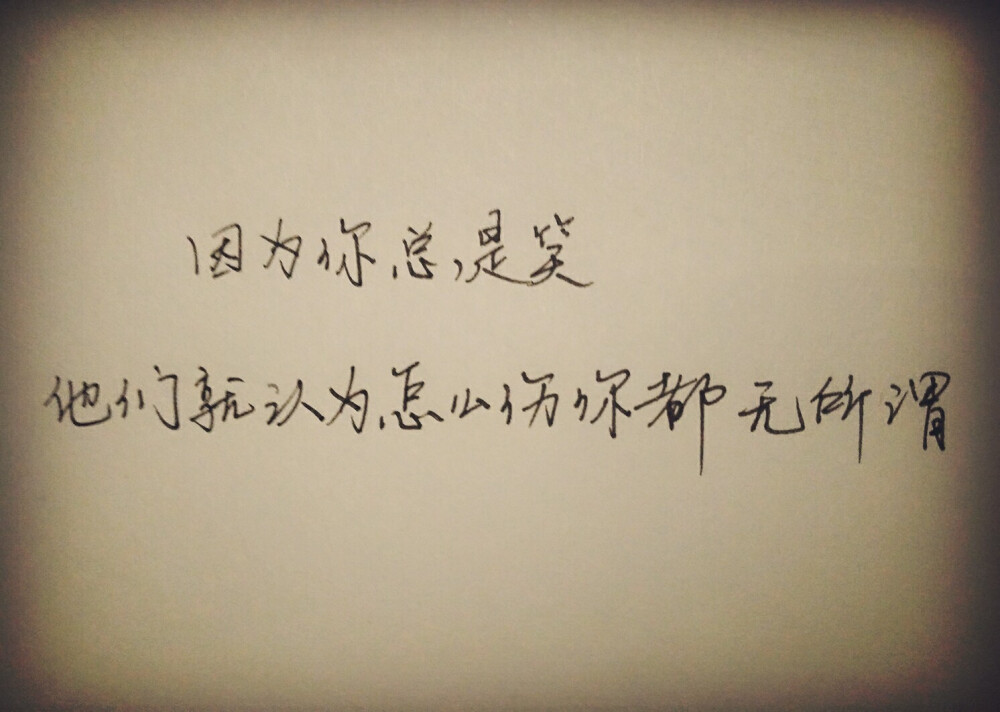 因为你总是笑
他们就认为怎么伤你都无所谓